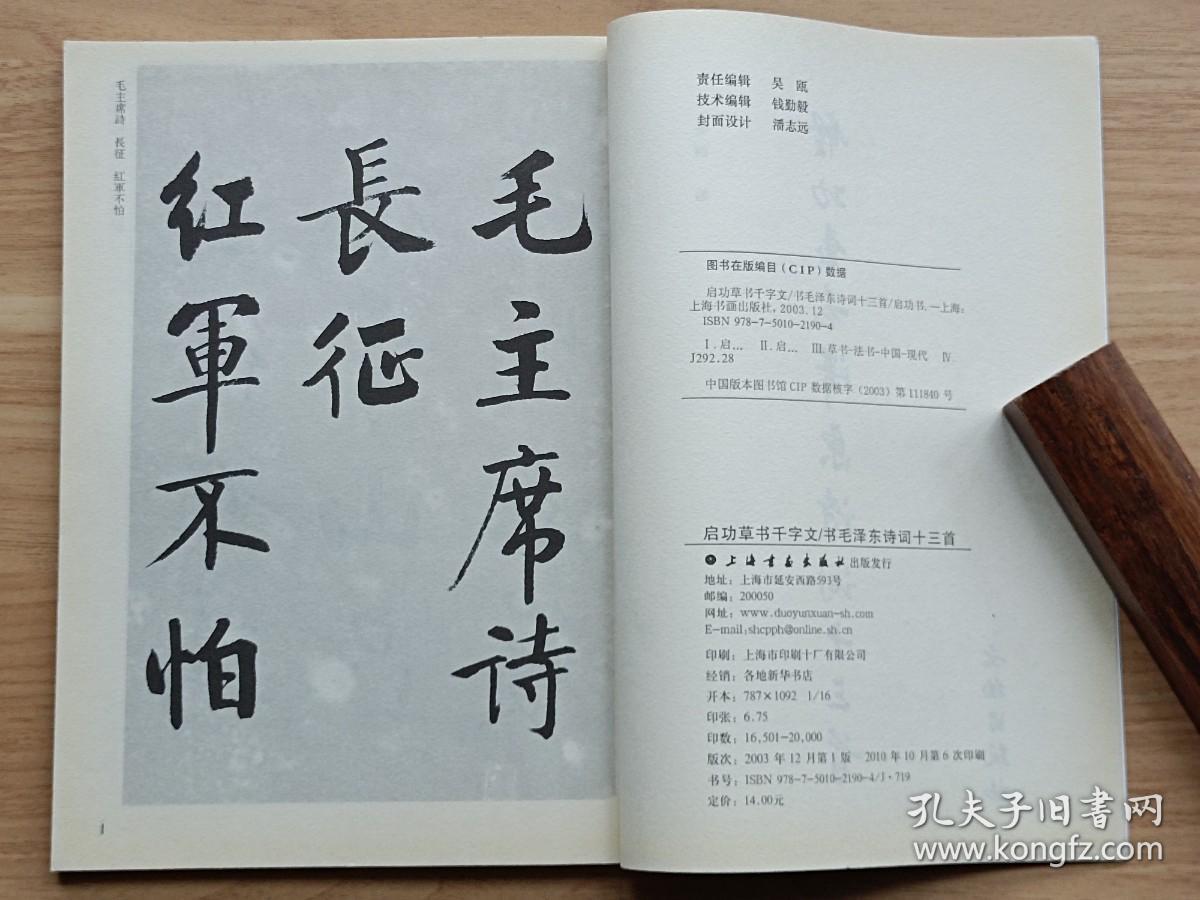 毛主席詩 長征 紅軍不怕
毛主席诗
長征
红軍不怕
1
责任编辑 吴瓯
技术编辑 钱勤毅
封面设计 潘志远
图书在版编目（CIP）数据
启功草书千字文/书毛泽东诗词十三首/启功书.—上海：
上海书画出版社，2003.12
ISBN 978-7-5010-2190-4
Ⅰ.启… Ⅱ.启… Ⅲ.草书-法书-中国-现代 Ⅳ.
J292.28
中国版本图书馆CIP数据核字（2003）第111840号
启功草书千字文/书毛泽东诗词十三首
上海书画出版社 出版发行
地址：上海市延安西路593号
邮编：200050
网址：www.duoyunxuan-sh.com
E-mail:shcpph@online.sh.cn
印刷：上海市印刷十厂有限公司
经销：各地新华书店
开本：787×1092 1/16
印张：6.75
印数：16,501-20,000
版次：2003年12月第1版 2010年10月第6次印刷
书号：ISBN 978-7-5010-2190-4/J·719
定价：14.00元
孔夫子旧书网
www.kongfz.com